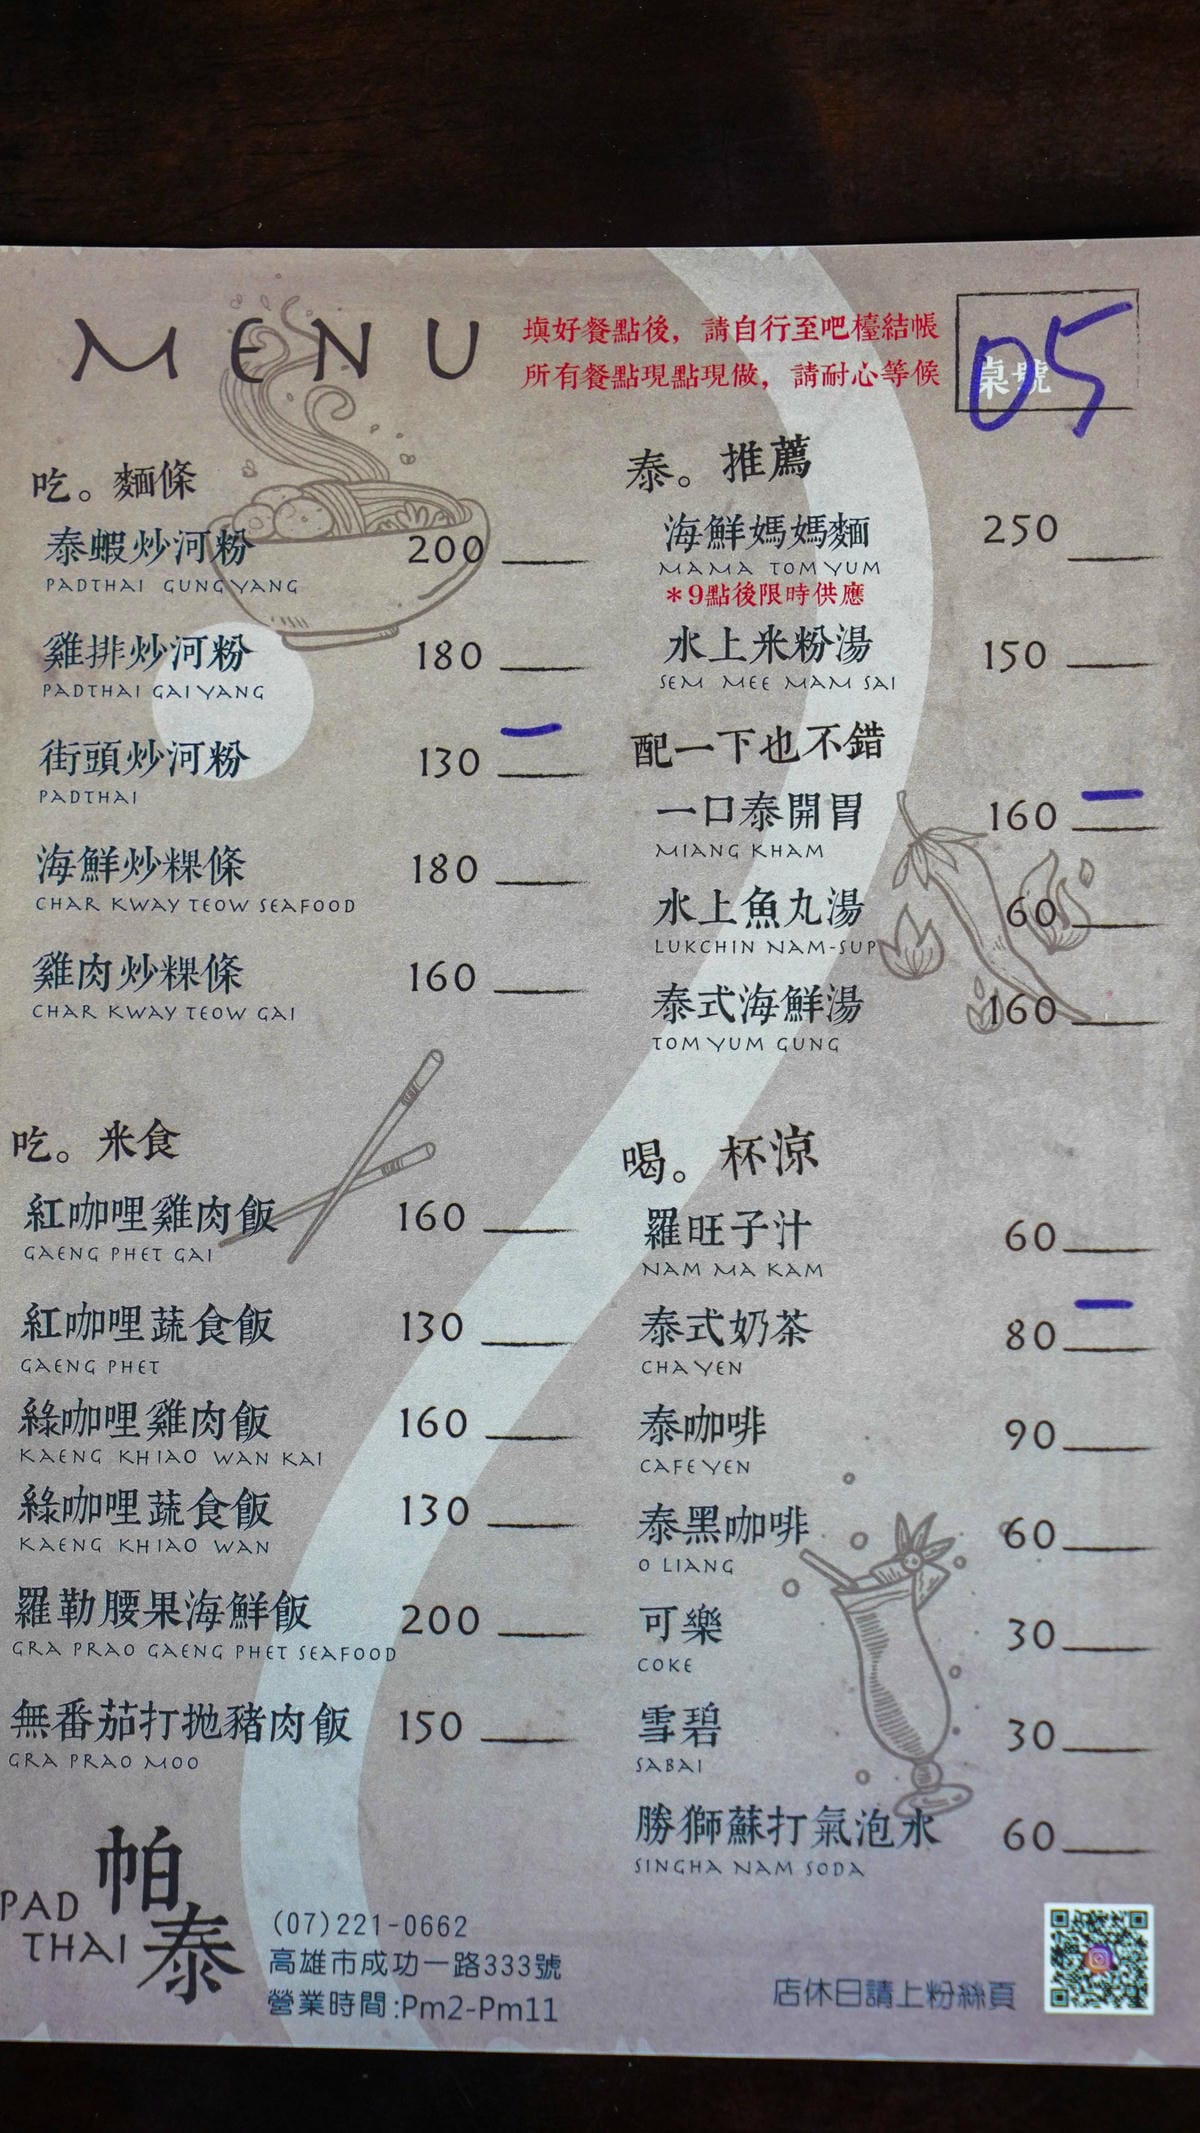 MENU
填好餐點後，請自行至吧檯結帳
所有餐點現點現做，請耐心等候
桌號
05
吃。麵條
泰蝦炒河粉 200
PADTHAI GUNG YANG
雞排炒河粉 180
PADTHAI GAI YANG
街頭炒河粉 130
PADTHAI
海鮮炒粿條 180
CHAR KWAY TEOW SEAFOOD
雞肉炒粿條 160
CHAR KWAY TEOW GAI
吃。米食
紅咖哩雞肉飯 160
GAENG PHET GAI
紅咖哩蔬食飯 130
GAENG PHET
綠咖哩雞肉飯 160
KAENG KHIAO WAN KAI
綠咖哩蔬食飯 130
KAENG KHIAO WAN
羅勒腰果海鮮飯 200
GRA PRAO GAENG PHET SEAFOOD
無番茄打拋豬肉飯 150
GRA PRAO MOO
泰。推薦
海鮮媽媽麵 250
MAMA TOM YUM
＊9點後限時供應
水上米粉湯 150
SEM MEE MAM SAI
配一下也不錯
一口泰開胃 160
MIANG KHAM
水上魚丸湯 60
LUKCHIN NAM-SUP
泰式海鮮湯 160
TOM YUM GUNG
喝。杯涼
羅旺子汁 60
NAM MA KAM
泰式奶茶 80
CHA YEN
泰咖啡 90
CAFE YEN
泰黑咖啡 60
O LIANG
可樂 30
COKE
雪碧 30
SABAI
勝獅蘇打氣泡水 60
SINGHA NAM SODA
帕泰
PAD THAI
(07)221-0662
高雄市成功一路333號
營業時間:Pm2-Pm11
店休日請上粉絲頁